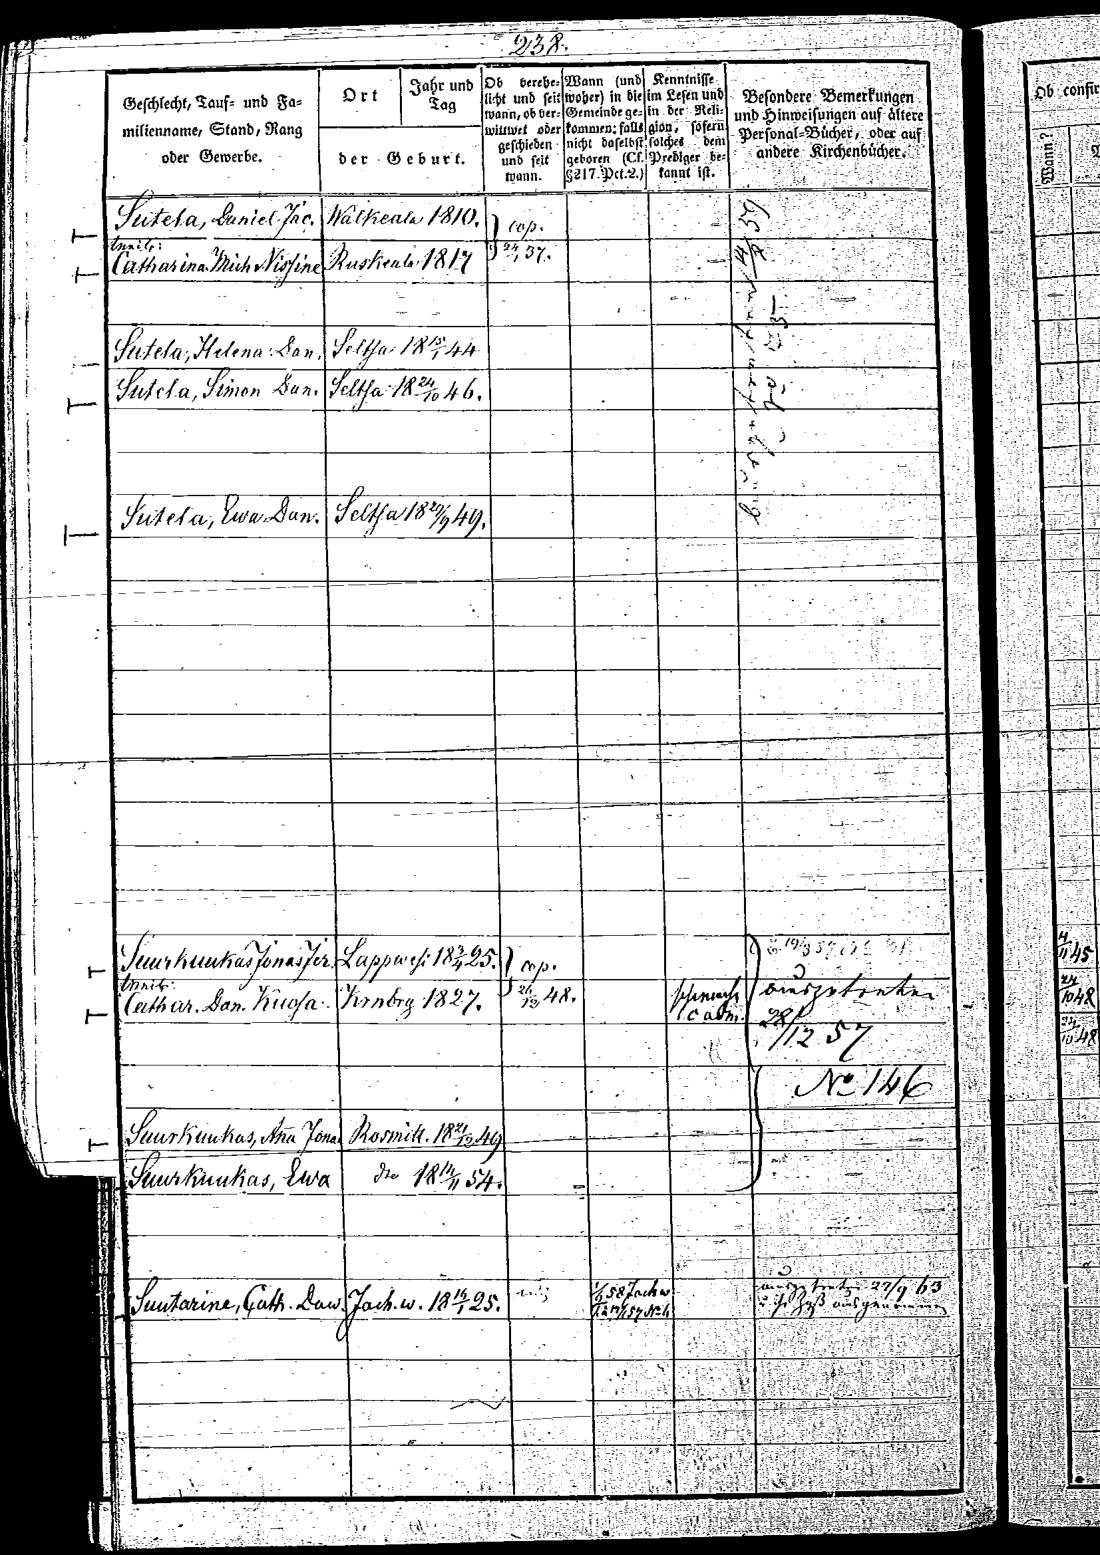 238.
Geschlecht, Tauf- und Fa-
milienname, Stand, Rang
oder Gewerbe.
Ort
Jahr und
Tag
der Geburt.
Ob verehe-
licht und seit
wann, ob ver-
wittwet oder
geschieden
und seit
wann.
Wann (und
woher) in die
Gemeinde ge-
kommen; falls
nicht daselbst
geboren (Cf.
§217. Pct. 2.)
Kenntnisse
im Lesen und
in der Reli-
gion, sofern
solches dem
Prediger be-
kannt ist.
Besondere Bemerkungen
und Hinweisungen auf ältere
Personal-Bücher, oder auf
andere Kirchenbücher.
Ob confir
Wann?
Sutela, Daniel Jac. Walkeala 1810. cop.
Catharina Mich Nissine Ruskeala 1817 24/1 37.
Sutela, Helena Dan. Seltsa 18 15/1 44
Sutela, Simon Dan. Seltsa 18 24/10 46.
Sutela, Ewa Dan. Seltsa 18 29/9 49.
Suurkuukas Jonas Jer. Lappwesi 18 3/4 25. cop. 4/11 45
Cathar. Dan. Kuosa Krnbrg 1827. 26/12 48. ausgetreten 24/10 48
28/12 57 24/10 48
No 146
Suurkuukas, Aña Jona Rosmitt. 18 21/12 49
Suurkuukas, Ewa dto 18 14/11 54.
Suutarine, Cath. Daw. Jach. w. 18 16/1 25. 58 Jach w ausgetreten 27/9 63